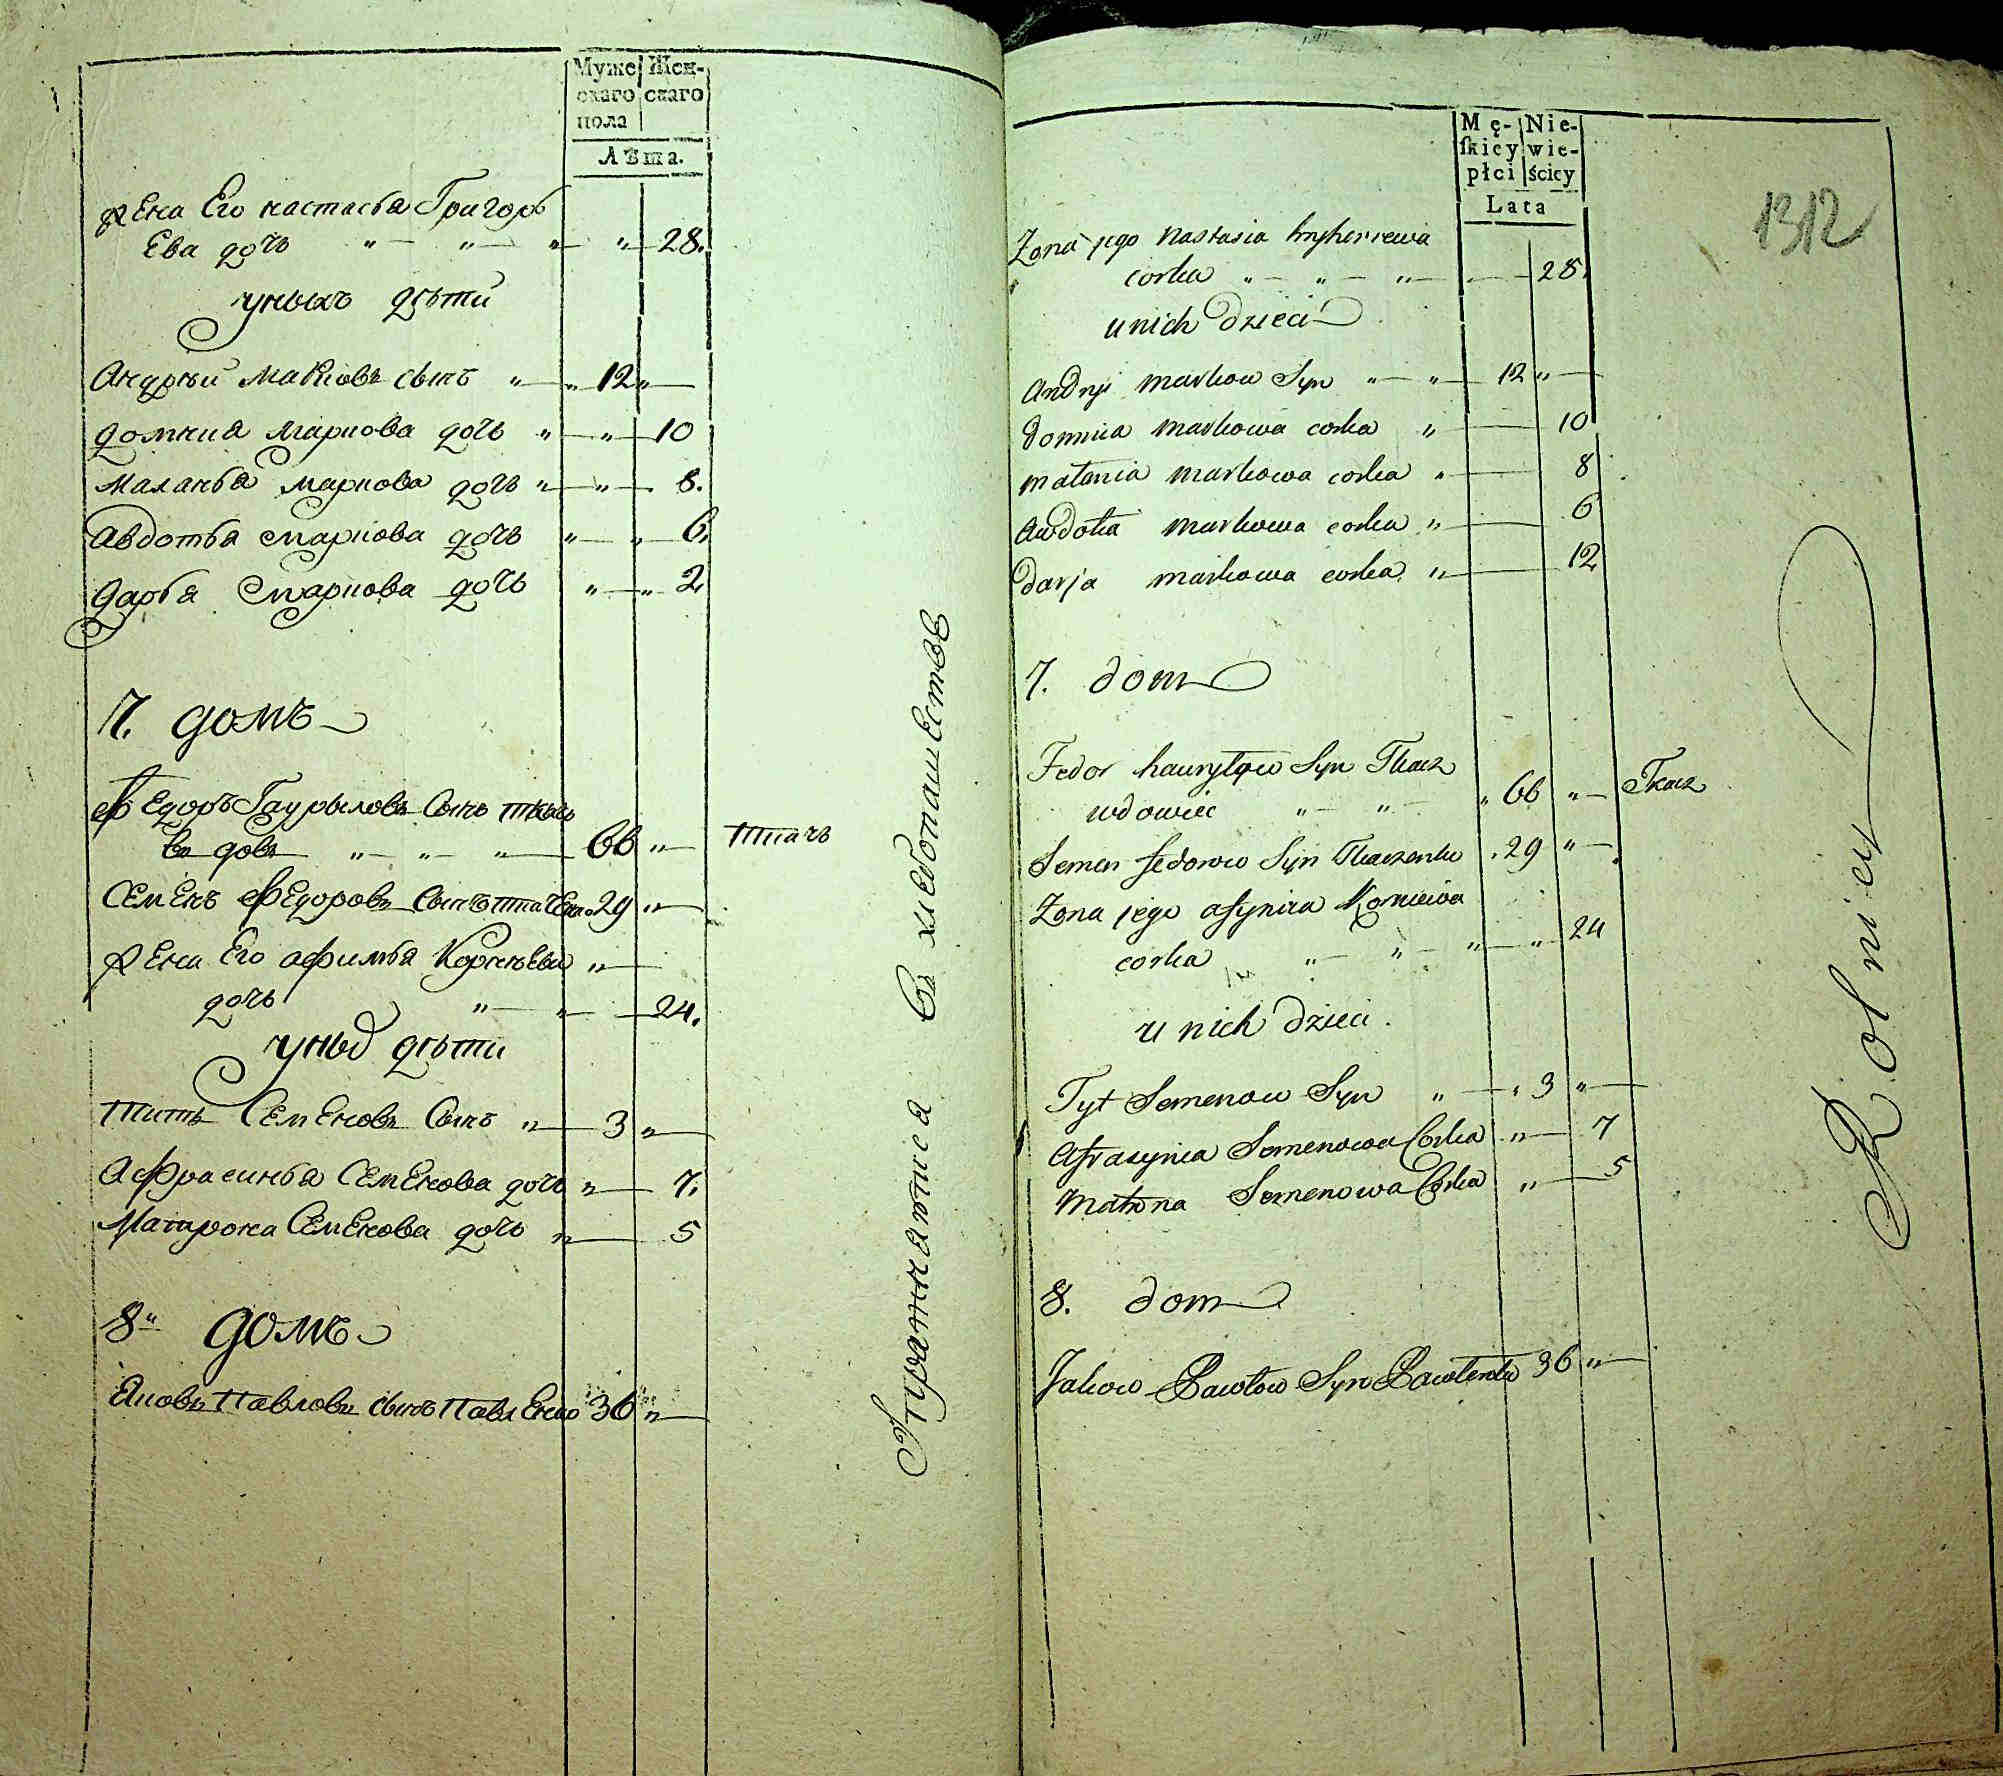 Муже Жен-
скаго скаго
пола
Лѣта.
жена Его настасья Григорь
Ева дочь " " " " 28.
уныхъ дѣти
Андрѣй Марковъ сынъ " " 12 "
домния Маркова дочь " " 10
Маланья Маркова дочь " " 8.
Авдотья Маркова дочь " " 6.
дарья Маркова дочь " " 2
7. домъ
Федоръ Гаурыловъ сынъ ткачь
вдовъ " " " 66 " ткачъ
СемЕнъ Федоровъ сынъ ткачЕнко 29 "
жена Его афимья КорнѣЕва "
дочь " " 24.
уных дѣти
титъ СемЕновъ сынъ " 3 "
Афрасинья СемЕнова дочь " 7.
Матрона СемЕнова дочь " 5
8" домъ
Яковъ Павловъ сынъ ПавлЕнко 36 "
Упражнаются въ хлебопашествѣ
Mę- Nie-
ſkiey wie-
płci ściey
Lata
1312
Zona jego Nastasia hryhoriewa
corka " " " 28.
u nich dzieci
Andryi Markow Syn " " 12 "
Domnia Markowa corka " 10
Małania Markowa corka " 8
Awdotia Markowa corka " 6
Darja Markowa corka " 12
7. dom
Fedor hauryłow Syn Tkacz
wdowiec " " " 66 " Tkacz
Semen Fedorow Syn Tkaczenko 29 "
Zona jego afymia Korniewa
corka " " " " 24
u nich dzieci.
Tyt Semenow Syn " " 3 "
Afrasynia Semenowa Corka " 7
Matrona Semenowa Corka " 5
8. dom
Jakow Pawłow Syn Pawłenko 36 "
Rolnicy